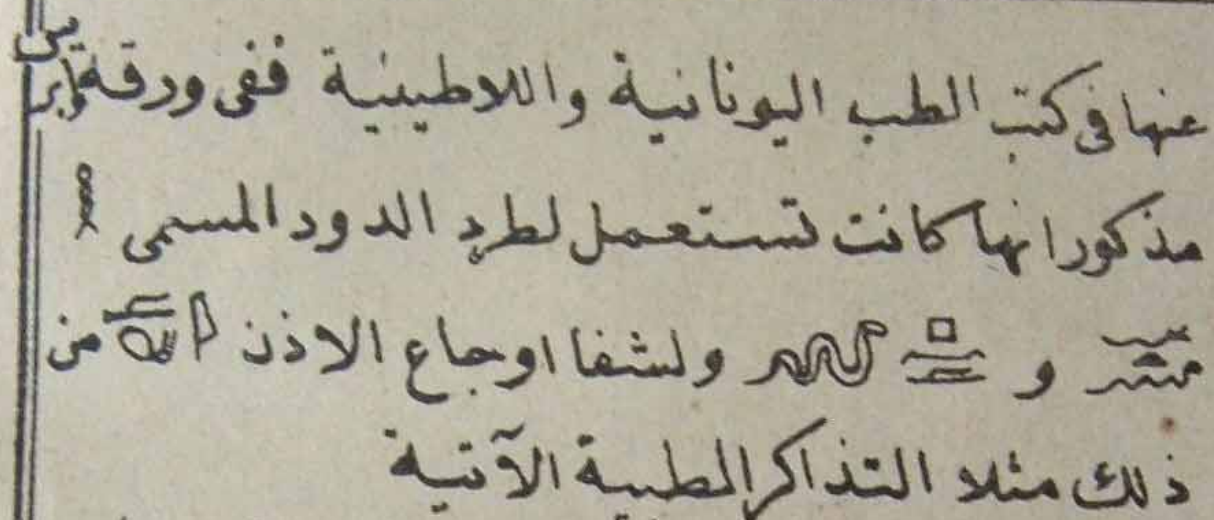 عنها فى كتب الطب اليونانية واللاطينية ففى ورقة ايبرس
مذكورا نها كانت تستعمل لطرد الدود المسمى
و ولشفا اوجاع الاذن من
ذلك مثلا التذاكر الطبية الآتية